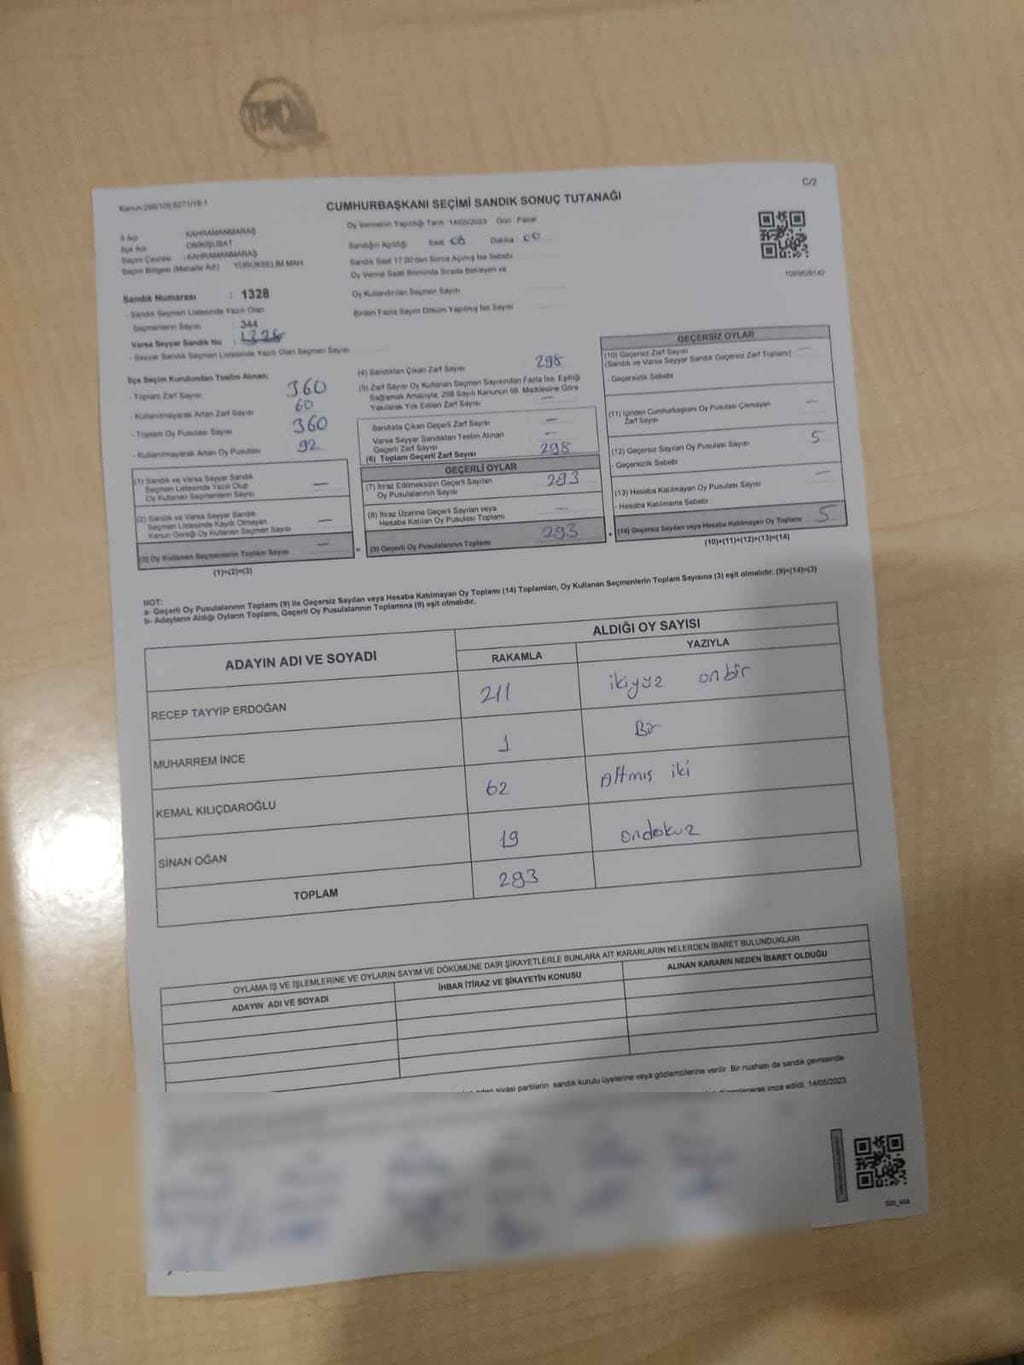 C/2
CUMHURBAŞKANI SEÇİMİ SANDIK SONUÇ TUTANAĞI
Oy Vermenin Yapıldığı Tarih 14/05/2023 Gün Pazar
İl Adı : KAHRAMANMARAŞ
İlçe Adı : ONİKİŞUBAT
Seçim Çevresi : KAHRAMANMARAŞ
Seçim Bölgesi (Mahalle Adı) YÜRÜKSELİM MAH.
Sandığın Açıldığı Saat 08 Dakika 00
Sandık Saat 17:00'den Sonra Açılmış İse Sebebi
Oy Verme Saati Bitiminde Sırada Bekleyen ve
Oy Kullandırılan Seçmen Sayısı
Birden Fazla Sayım Döküm Yapılmış İse Sayısı
Sandık Numarası : 1328
- Sandık Seçmen Listesinde Yazılı Olan
Seçmenlerin Sayısı : 344
Varsa Seyyar Sandık No : 1328
- Seyyar Sandık Seçmen Listesinde Yazılı Olan Seçmen Sayısı
İlçe Seçim Kurulundan Teslim Alınan;
- Toplam Zarf Sayısı 360
- Kullanılmayarak Artan Zarf Sayısı 60
- Toplam Oy Pusulası Sayısı 360
- Kullanılmayarak Artan Oy Pusulası 92
(1) Sandık ve Varsa Seyyar Sandık
Seçmen Listesinde Yazılı Olup
Oy Kullanan Seçmenlerin Sayısı —
(2) Sandık ve Varsa Seyyar Sandık
Seçmen Listesinde Kayıtlı Olmayan
Kanun Gereği Oy Kullanan Seçmen Sayısı —
(3) Oy Kullanan Seçmenlerin Toplam Sayısı —
(1)+(2)=(3)
(4) Sandıktan Çıkan Zarf Sayısı 298
(5) Zarf Sayısı Oy Kullanan Seçmen Sayısından Fazla İse, Eşitliği
Sağlamak Amacıyla, 298 Sayılı Kanunun 98. Maddesine Göre
Yakılarak Yok Edilen Zarf Sayısı —
Sandıkta Çıkan Geçerli Zarf Sayısı —
Varsa Seyyar Sandıktan Teslim Alınan
Geçerli Zarf Sayısı —
(6) Toplam Geçerli Zarf Sayısı 298
GEÇERLİ OYLAR
(7) İtiraz Edilmeksizin Geçerli Sayılan
Oy Pusulalarının Sayısı 293
(8) İtiraz Üzerine Geçerli Sayılan veya
Hesaba Katılan Oy Pusulası Toplamı —
(9) Geçerli Oy Pusulalarının Toplamı 293
GEÇERSİZ OYLAR
(10) Geçersiz Zarf Sayısı
(Sandık ve Varsa Seyyar Sandık Geçersiz Zarf Toplamı) —
- Geçersizlik Sebebi
(11) İçinden Cumhurbaşkanı Oy Pusulası Çıkmayan
Zarf Sayısı —
(12) Geçersiz Sayılan Oy Pusulası Sayısı 5
- Geçersizlik Sebebi
(13) Hesaba Katılmayan Oy Pusulası Sayısı —
- Hesaba Katılmama Sebebi
(14) Geçersiz Sayılan veya Hesaba Katılmayan Oy Toplamı 5
(10)+(11)+(12)+(13)=(14)
NOT:
a- Geçerli Oy Pusulalarının Toplamı (9) ile Geçersiz Sayılan veya Hesaba Katılmayan Oy Toplamı (14) Toplamları, Oy Kullanan Seçmenlerin Toplam Sayısına (3) eşit olmalıdır. (9)+(14)=(3)
b- Adayların Aldığı Oyların Toplamı, Geçerli Oy Pusulalarının Toplamına (9) eşit olmalıdır.
ADAYIN ADI VE SOYADI
ALDIĞI OY SAYISI
RAKAMLA YAZIYLA
RECEP TAYYİP ERDOĞAN 211 ikiyüz onbir
MUHARREM İNCE 1 Bir
KEMAL KILIÇDAROĞLU 62 Altmış iki
SİNAN OĞAN 19 ondokuz
TOPLAM 293
OYLAMA İŞ VE İŞLEMLERİNE VE OYLARIN SAYIM VE DÖKÜMÜNE DAİR ŞİKAYETLERLE BUNLARA AİT KARARLARIN NELERDEN İBARET BULUNDUKLARI
ADAYIN ADI VE SOYADI İHBAR İTİRAZ VE ŞİKAYETİN KONUSU ALINAN KARARIN NEDEN İBARET OLDUĞU
siyasi partilerin sandık kurulu üyelerine veya gözlemcilerine verilir. Bir nushası da sandık çevresinde
düzenlenerek imza edildi. 14/05/2023